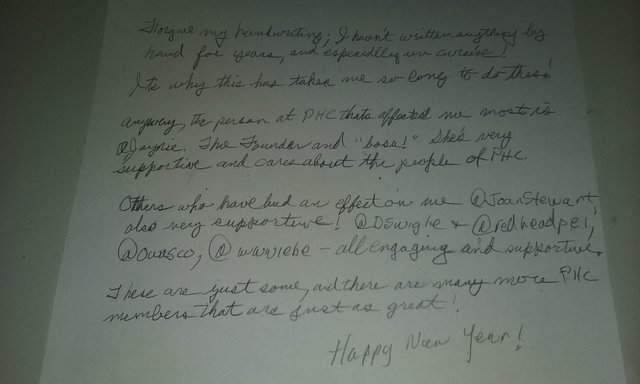 Forgive my handwriting; I haven't written anything by
hand for years, and especially in cursive!
It's why this has taken me so long to do this!
Anyway, the person at PHC thats affected me most is
@Jaynie. The Founder and "boss!" She's very
supportive and cares about the people of PHC
Others who have had an effect on me @JoanStewart,
also very supportive! @DSwigle & @redheadpei,
@Ovasco, @wawriebe - all engaging and supportive.
These are just some, and there are many more PHC
members that are just as great!
Happy New Year!